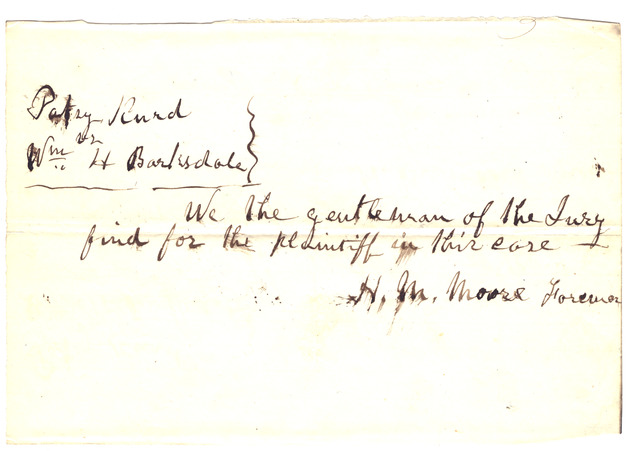 Patsy Hurd
vs
Wm H Barksdale
We the gentleman of the Jury
find for the plaintiff in this case
H. M. Moore Foreman